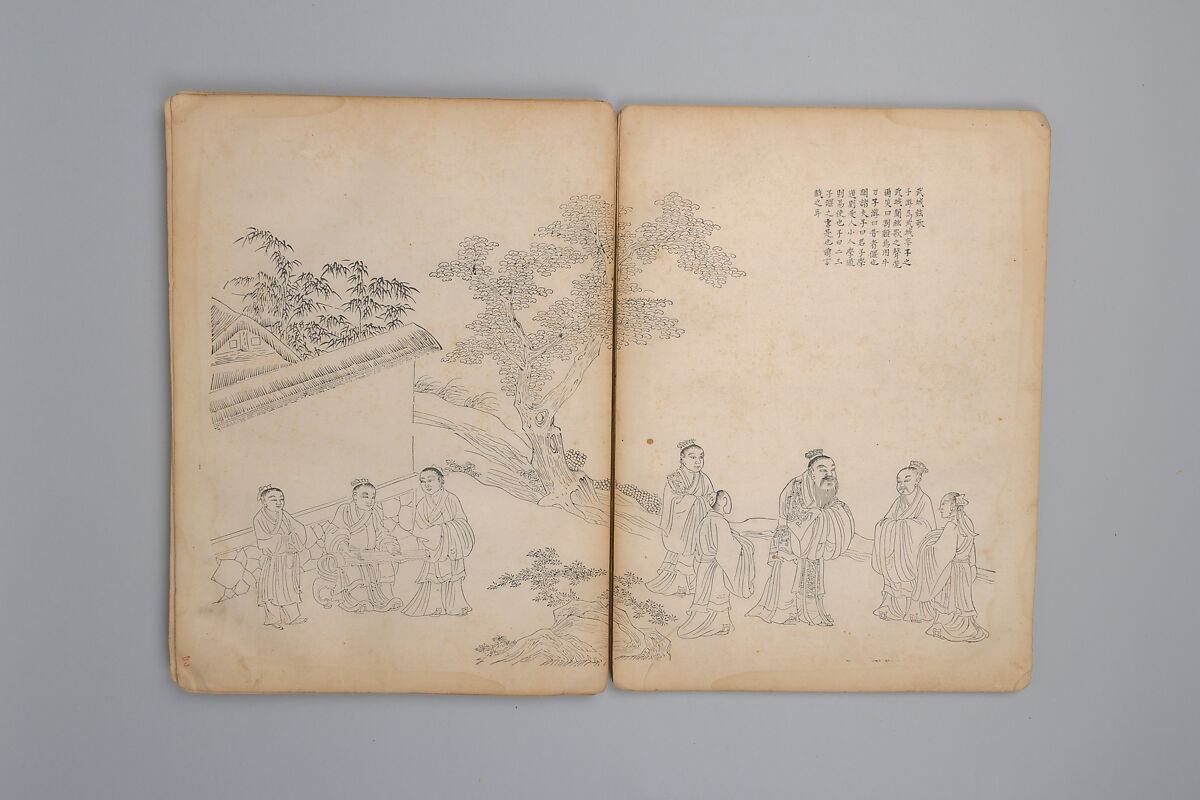 武城絃歌
子游為武城宰子之
武城聞絃歌之聲莞
爾笑曰割雞焉用牛
刀子游曰昔者偃也
聞諸夫子曰君子學
道則愛人小人學道
則易使也子曰二三
子偃之言是也前言
戲之耳